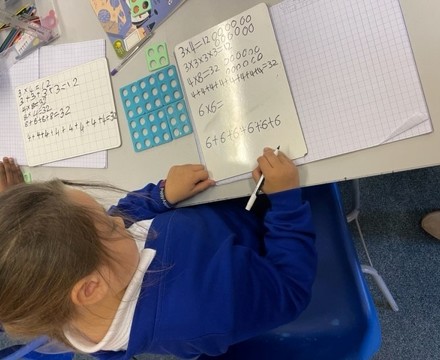 3×4=12
3+3+3+3=12
4×8=32
8+8+8+8=32
4+4+4+4+4+4+4+4=32
3×4=12
3×3×3×3=12
4×8=32
4+4+4+4+4+4+4+4=32
6×6=
6+6+6+6+6+6